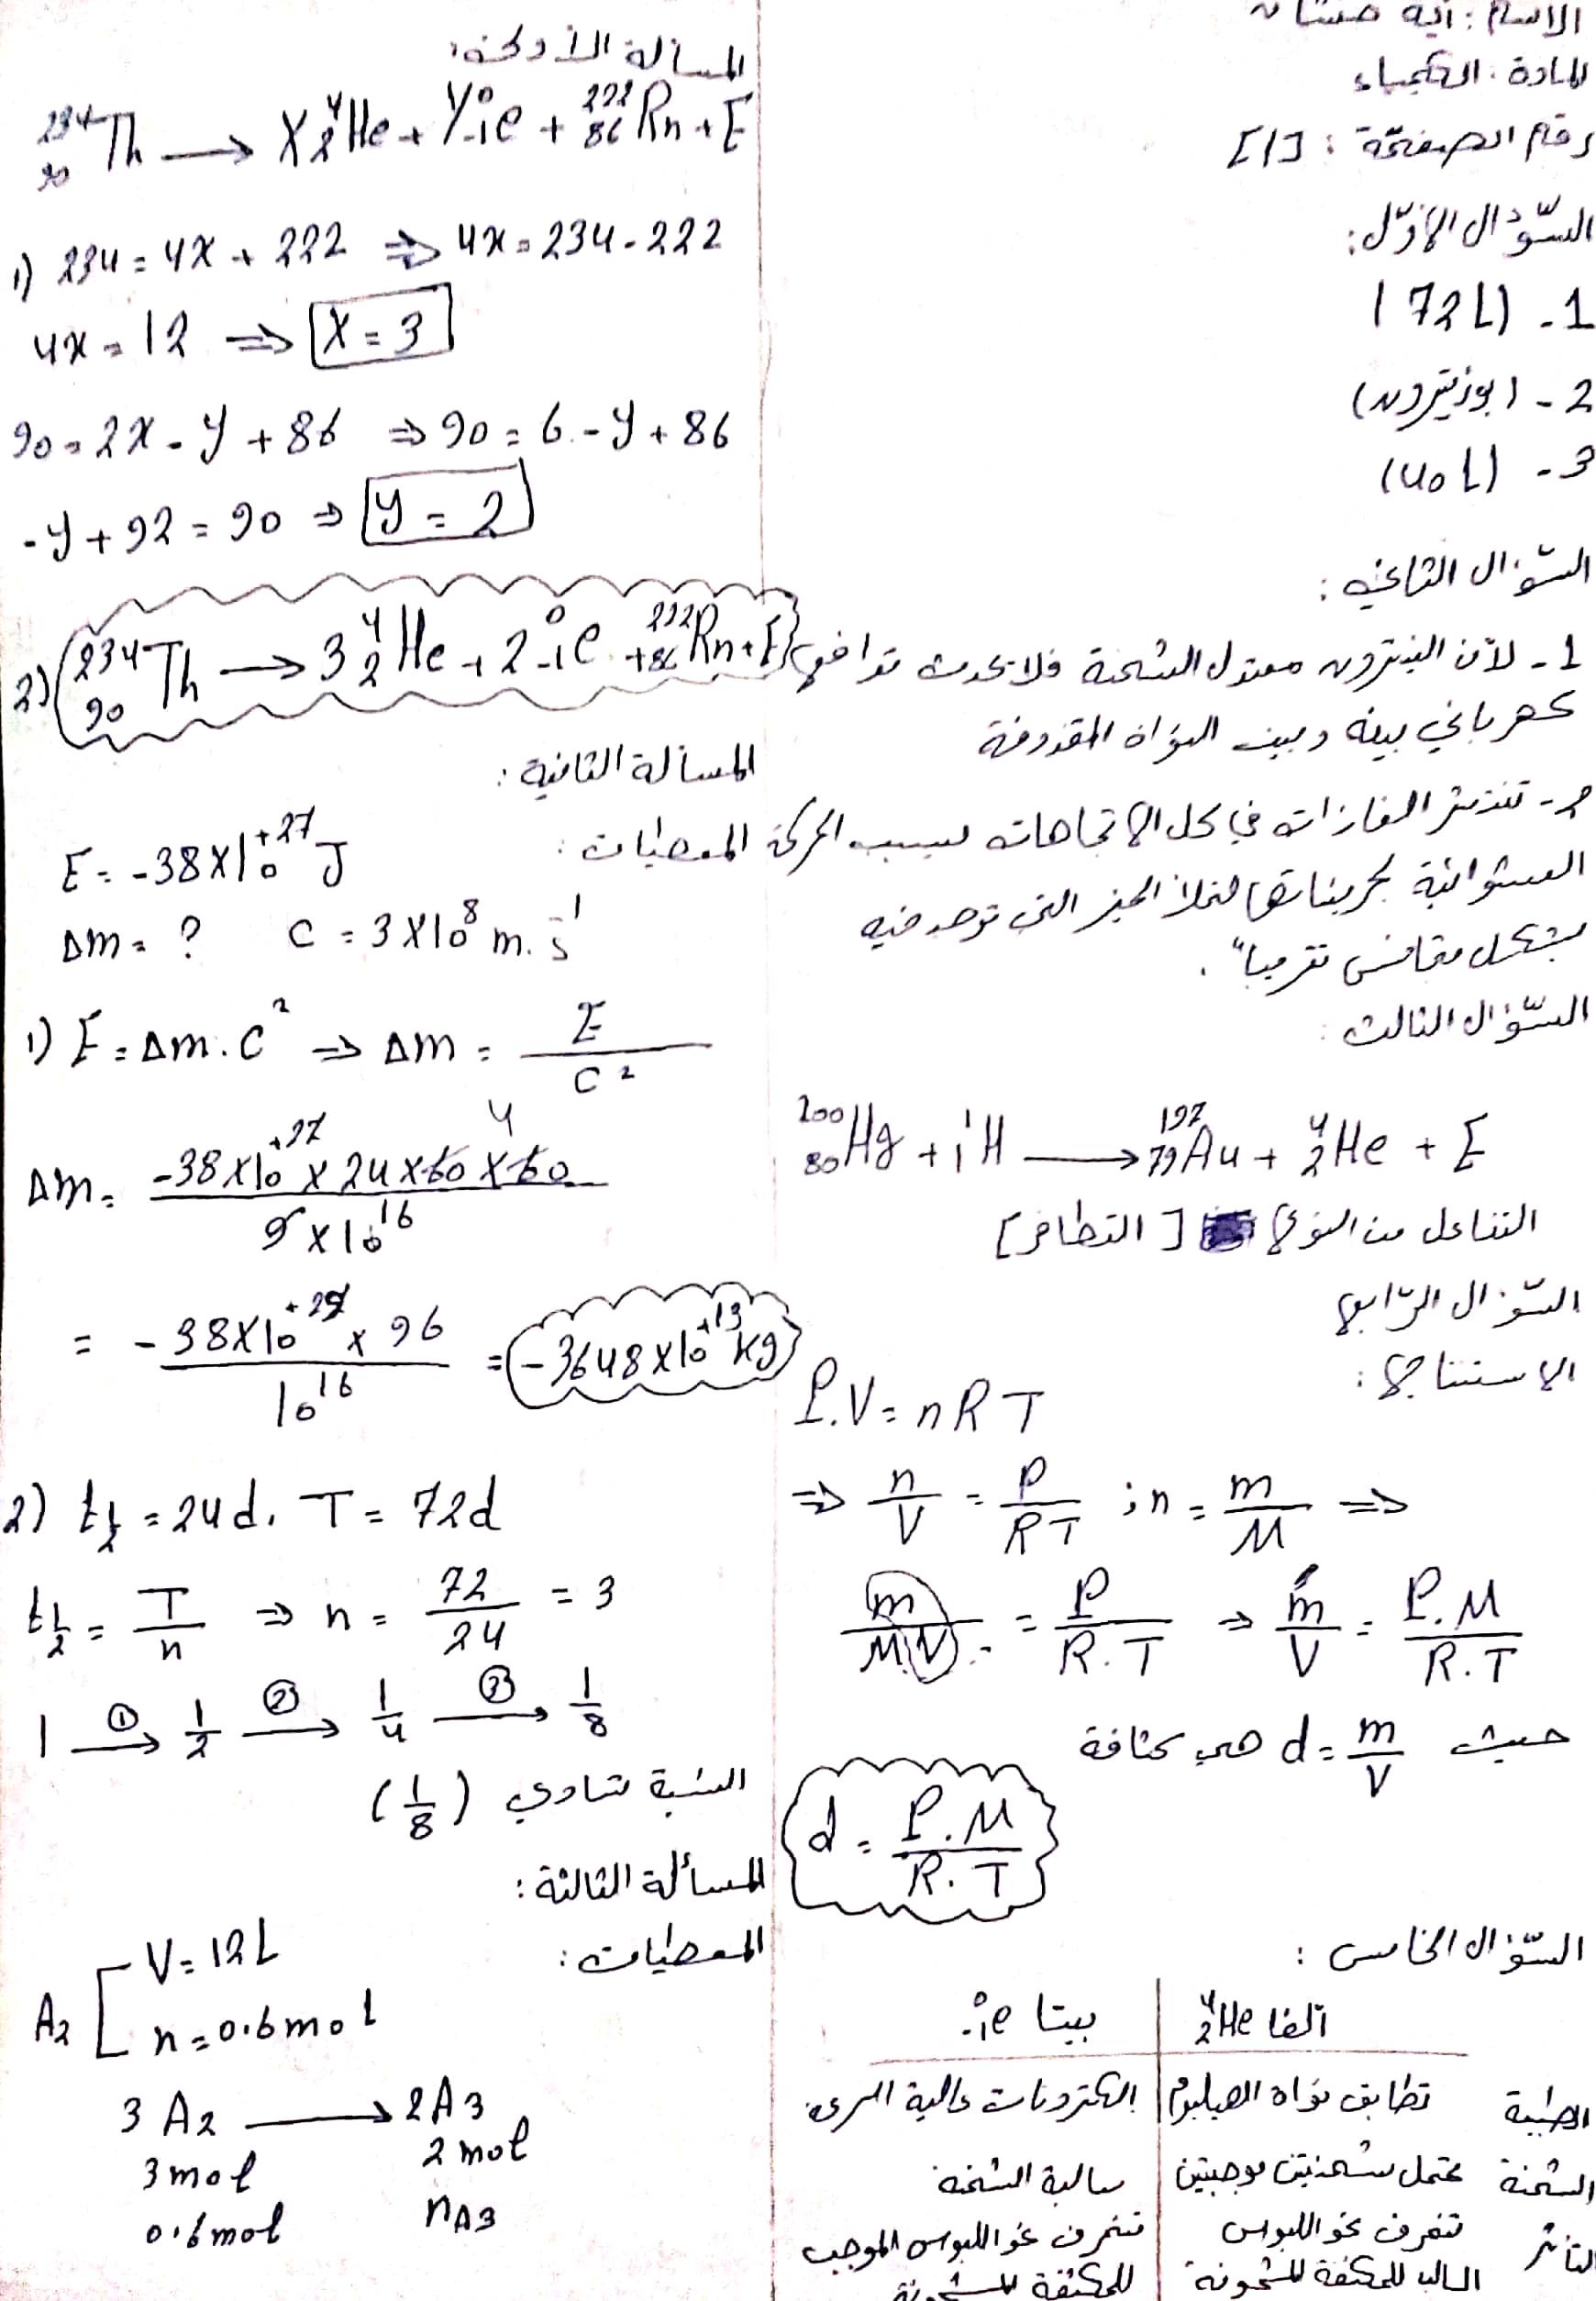 الاسم : آية
المادة : الكيمياء
رقم الصفحة : [1]
السّؤال الأوّل:
1- (72L)
2- (بوزيترون)
3- (40L)
السّؤال الثاني :
1- لأن النيترون معتدل الشحنة فلا يحدث تدافع
كهربائي بينه وبين النواة المقذوفة
2- تنتشر الغازات في كل الاتجاهات بسبب الحركة
العشوائية لجزيئاتها لتملأ الحيز الذي توجد فيه
بشكل متجانس تقريباً .
السّؤال الثالث :
²⁰⁰₈₀Hg + ¹₁H ⟶ ¹⁹⁷₇₉Au + ⁴₂He + E
التفاعل من النوع [التطافر]
السّؤال الرّابع
الاستنتاج :
P.V = nRT
⇒ n/V = P/RT ; n = m/M ⇒
m/M.V = P/R.T ⇒ m/V = P.M/R.T
حيث d = m/V هي كثافة
d = P.M/R.T
السّؤال الخامس :
ألفا ⁴₂He | بيتا ⁰₋₁e
الطبيعة تطابق نواة الهيليوم | الكترونات عالية السرعة
الشحنة تحمل شحنتين موجبتين | سالبة الشحنة
التأثر تنحرف نحو اللبوس | تنحرف نحو اللبوس الموجب
السالب للمكثفة المشحونة | للمكثفة المشحونة
المسألة الأولى:
²³⁴₉₀Th ⟶ X ⁴₂He + Y ⁰₋₁e + ²²²₈₆Rn + E
1) 234 = 4X + 222 ⇒ 4X = 234 - 222
4X = 12 ⇒ X = 3
90 = 2X - Y + 86 ⇒ 90 = 6 - Y + 86
-Y + 92 = 90 ⇒ Y = 2
2) ²³⁴₉₀Th ⟶ 3 ⁴₂He + 2 ⁰₋₁e + ²²²₈₆Rn + E
المسألة الثانية :
المعطيات :
E = -38 × 10⁺²⁷ J
Δm = ? C = 3 × 10⁸ m.s⁻¹
1) E = Δm.C² ⇒ Δm = E/C²
Δm = -38×10⁺²⁷ × 24 × 60 × 60 / 9 × 10¹⁶
4
= -38×10⁺²⁹ × 96 / 10¹⁶ = -3648 × 10⁺¹³ kg
2) t½ = 24d, T = 72d
t½ = T/n ⇒ n = 72/24 = 3
1 ⟶① 1/2 ⟶② 1/4 ⟶③ 1/8
النسبة تساوي (1/8)
المسألة الثالثة :
المعطيات :
A2 [ V = 12L
n = 0.6mol
3 A2 ⟶ 2A3
3mol 2mol
0.6mol nA3